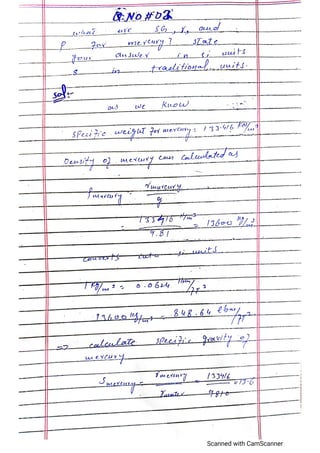 Q:NO#02
what are SG, γ, and
ρ for mercury? State
your answer in si units
& in traditional units.
Sol:-
as we know
specific weight for mercury: 133416 N/m³
Density of mercury can calculated as
ρ mercury = γ mercury / g
= 133416 N/m³ / 9.81 = 13600 kg/m³
converts into si units
1 kg/m³ = 0.0624 lbm/ft³
13600 kg/m³ = 848.64 lbm/ft³
=> calculate specific gravity of
mercury
S mercury = γ mercury / γ water = 133416 / 9810 = 13.6
Scanned with CamScanner